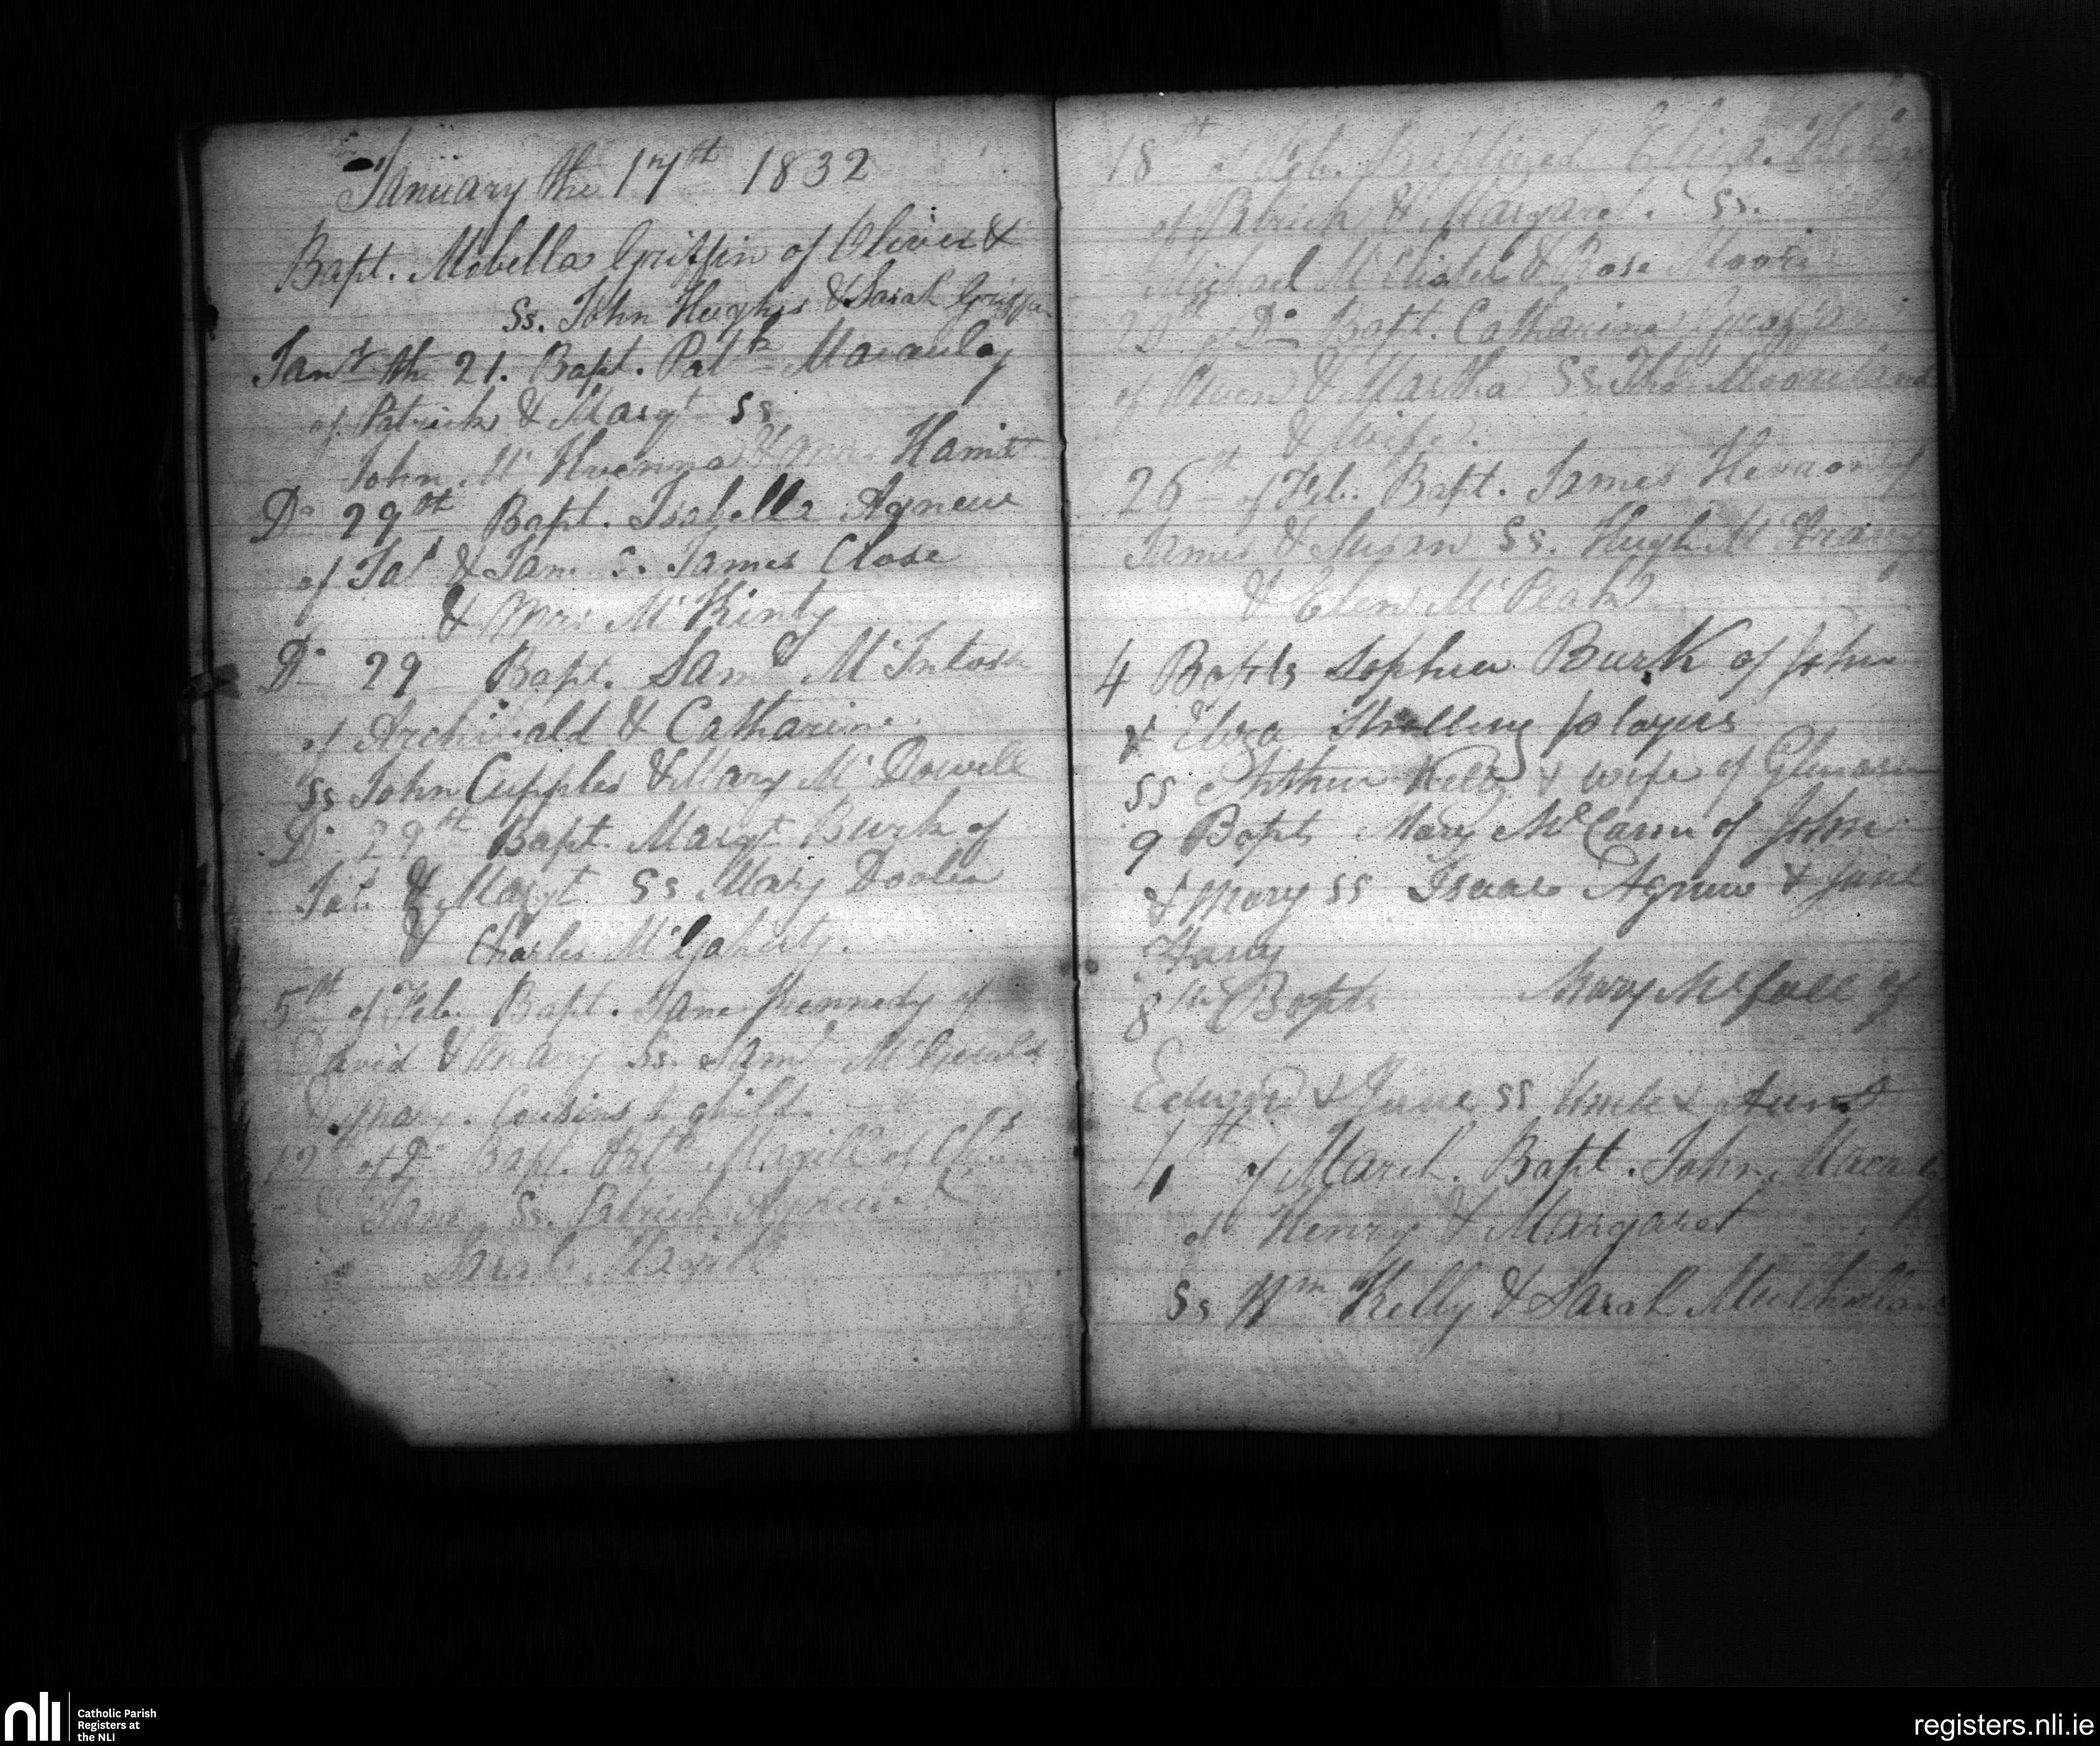 January the 17th 1832
Bapt. Mobella Griffin of Oliver &
Ss. John Hughes & Sarah Griffin
Jany the 21. Bapt. Patk Macaulay
of Patrick & Margt Ss
John Mc &
Do 29th Bapt. Isabella Agnew
of Jas & Jane S. James Close
& Mrs McKinty
Do 29 Bapt. Saml McIntosh
of Archibald & Catharine
Ss John Cupples & Mary McDowell
Do 29th Bapt. Margt Burk of
& Margt Ss Mary Doolin
& Charles McGaherty.
5th of Feb. Bapt. Jane Kennedy of
David & Mary Ss. Saml
Mary. Cousins to child.
12th of Do Bapt. Patk Magill of
& Jane Ss. Patrick Agnew &
Sarah Magill
18th of Feb. Baptized Eliza
of Patrick & Margaret. Ss.
Michael & Rose Moore
of Do Bapt. Catharine
of Owen & Martha Ss Thos
& Wife.
26th of Feb. Bapt. James of
James & Susan Ss. Hugh Mc
& Elen McPeak
4 Bapts Sophia Burk of John
& Eliza Strolling players
SS Arthur Kelly & wife of Glenarm
9 Bapts Mary McCann of John
& Mary SS Isaac Agnew & Jane
Harvy
8th Bapts Mary McFall of
Edward & Jane SS Uncle & Aunt
1th of March. Bapt. John
of Henry & Margaret
Ss Wm Kelly & Sarah Mulholland
nli
Catholic Parish
Registers at
the NLI
registers.nli.ie